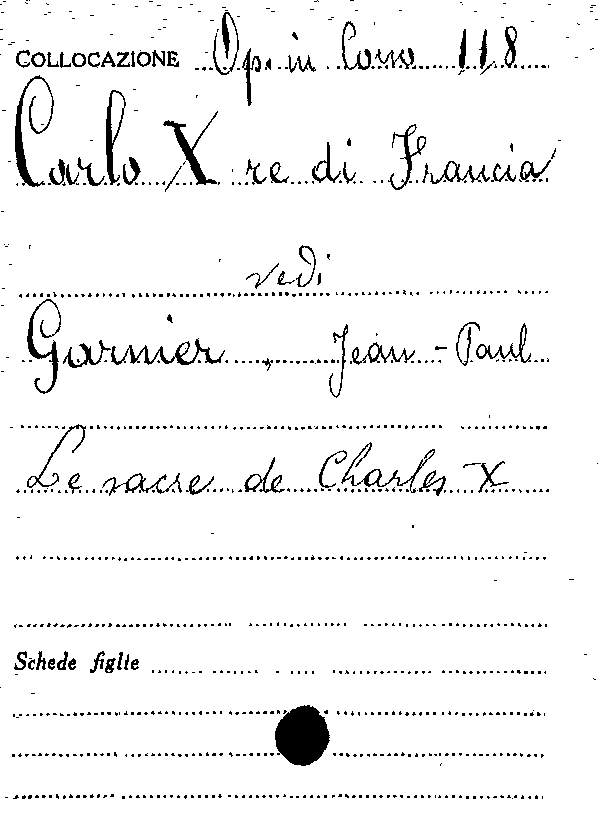 COLLOCAZIONE Op. in Corso 118
Carlo X re di Francia
vedi
Garnier, Jean-Paul
Le sacre de Charles X
Schede figlie